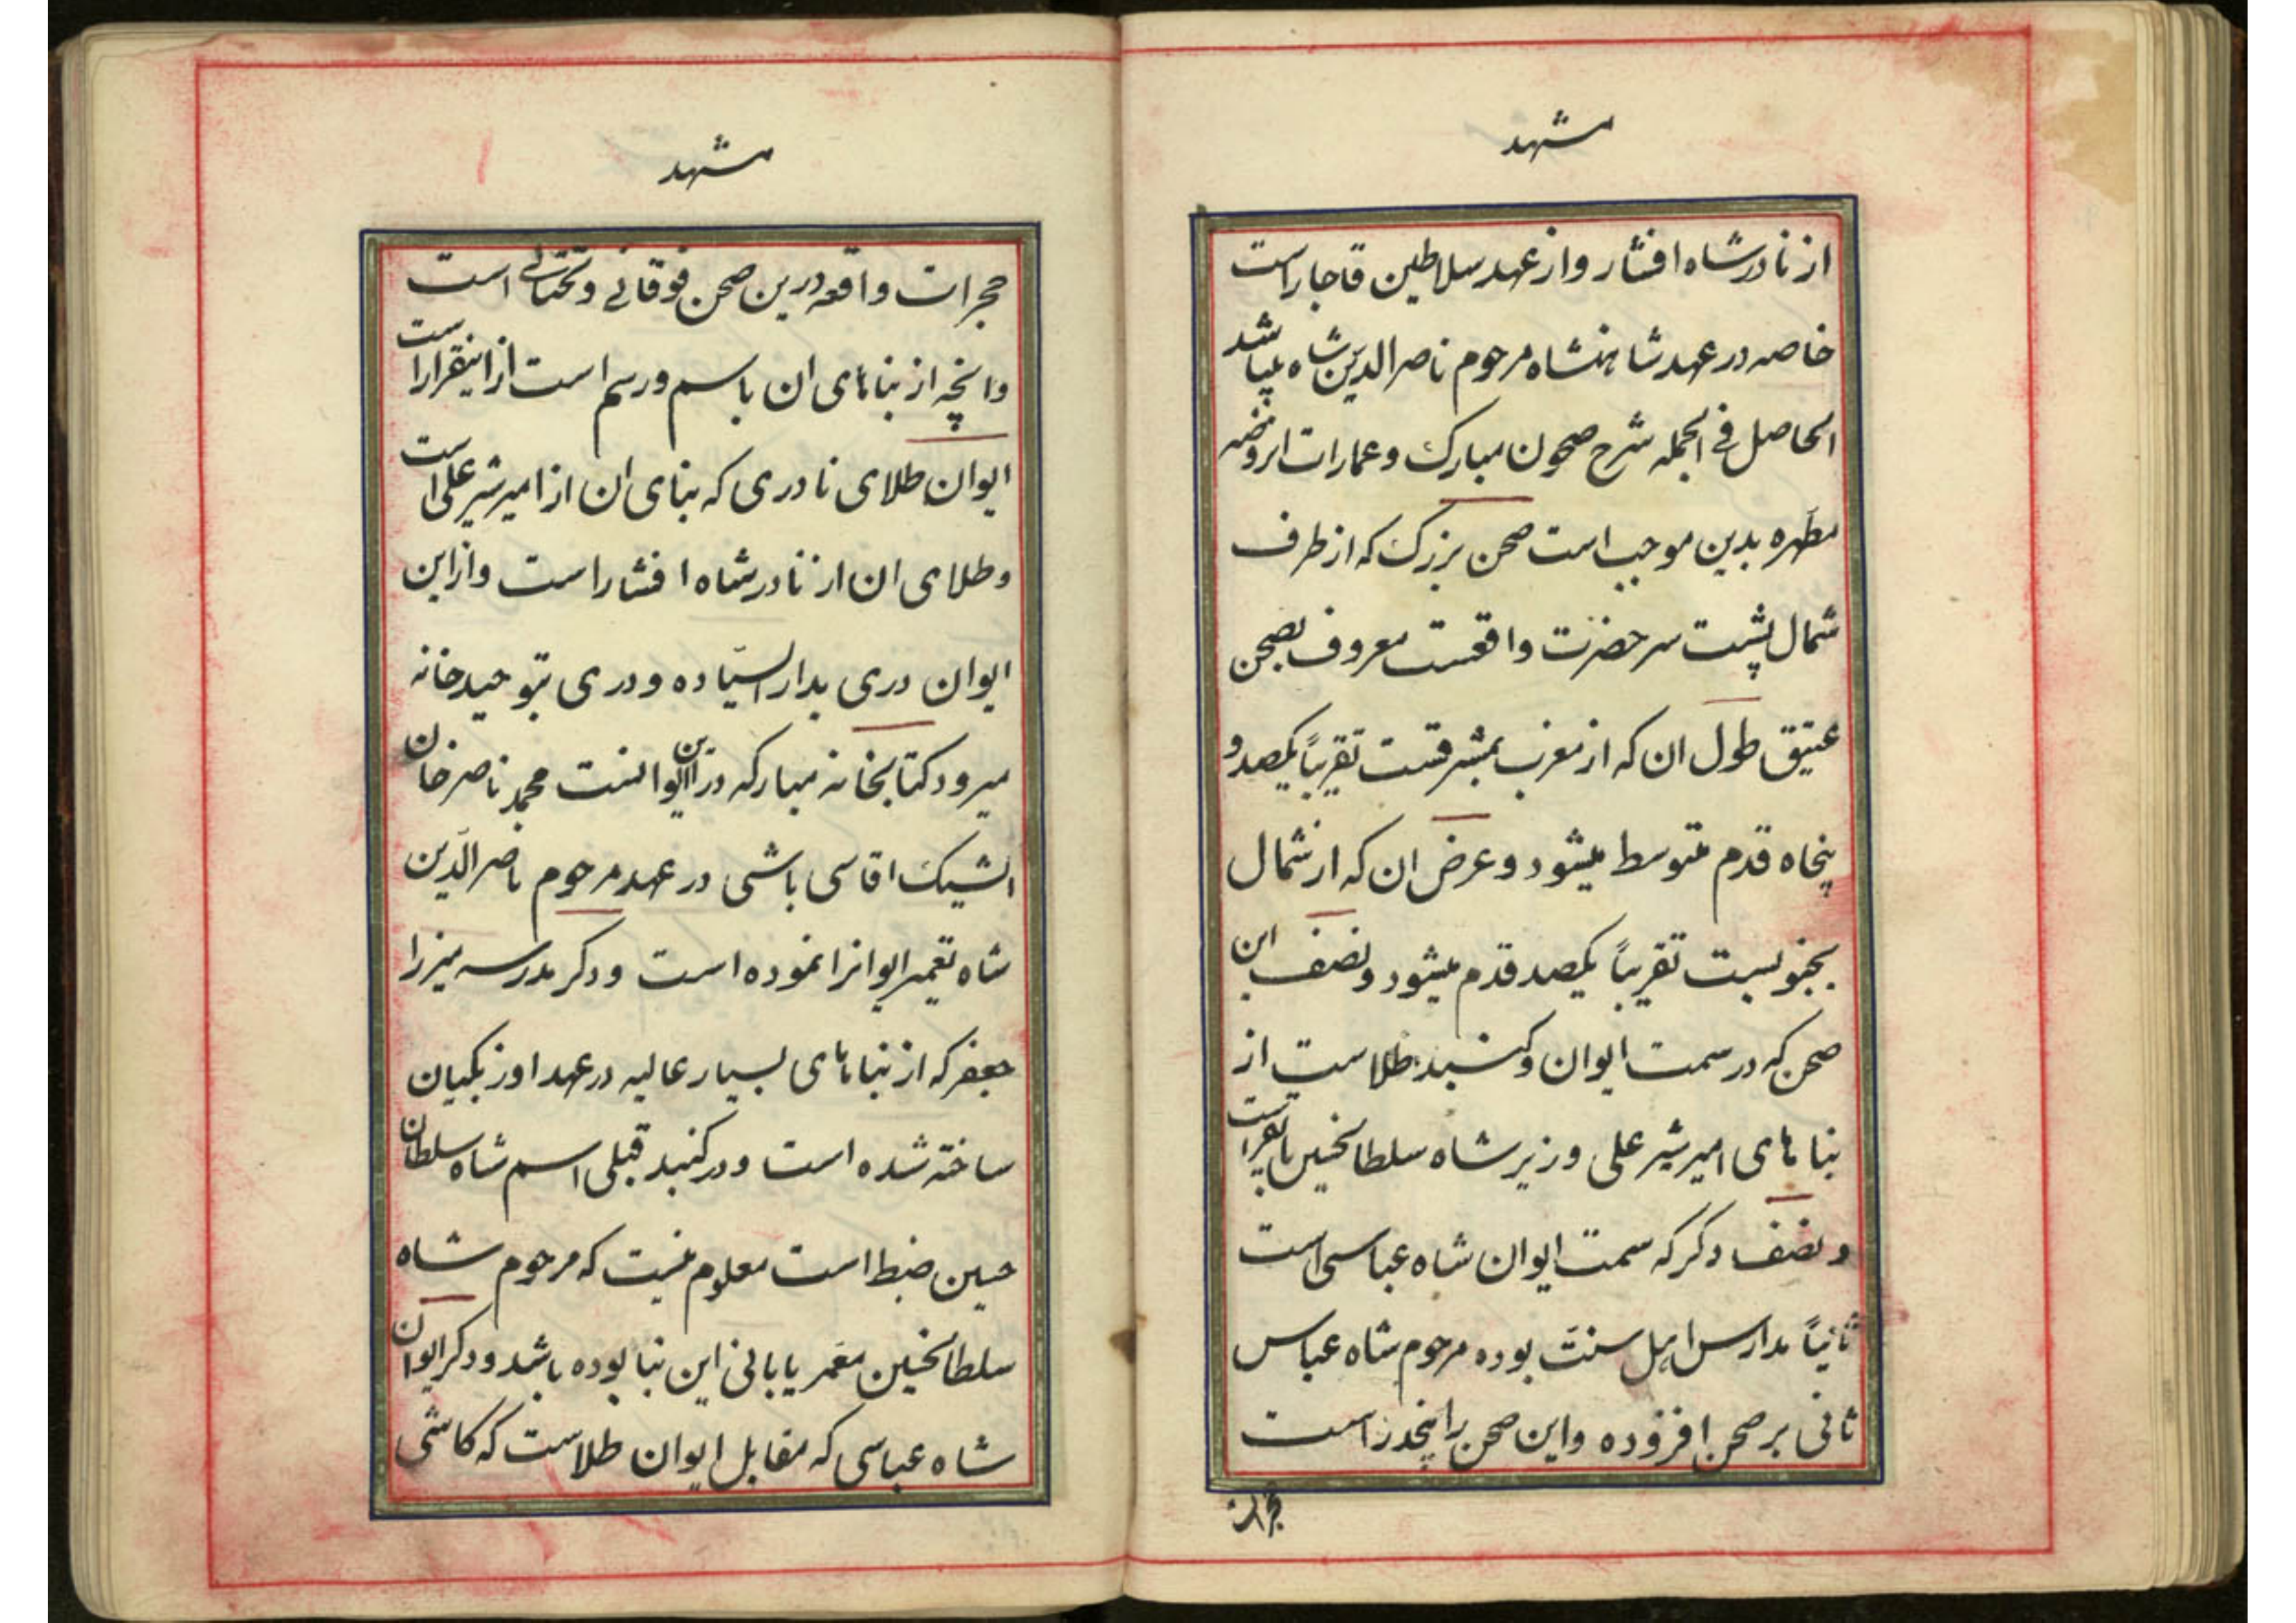 مشهد
از نادرشاه افشار و از عهد سلاطین قاجار است
خاصه در عهد شاهنشاه مرحوم ناصرالدین شاه میباشد
الحاصل فی الجمله شرح صحون مبارک و عمارات روضه
مطهره بدین موجب است صحن بزرگ که از طرف
شمال پشت سر حضرت واقعست معروف بصحن
عتیق طول ان که از مغرب بمشرقست تقریباً یکصد و
پنجاه قدم متوسط میشود و عرض ان که از شمال
بجنوبست تقریباً یکصد قدم میشود و نصف این
صحن که در سمت ایوان و کنبد طلاست از
بناهای امیر شیر علی وزیر شاه سلطانحسین بایقراست
و نصف دکر که سمت ایوان شاه عباسی است
ثانیاً مدارس اهل سنت بوده مرحوم شاه عباس
ثانی بر صحن افزوده و این صحن را پنجدر است
حجرات
مشهد
حجرات واقعه درین صحن فوقانی و تحتانی است
وانچه از بناهای ان باسم و رسم است ازاینقرار است
ایوان طلای نادری که بنای ان از امیر شیر علی است
و طلای ان از نادرشاه افشار است و ازاین
ایوان دری بدارالسیاده و دری بتوحیدخانه
میرود کتابخانه مبارکه در این ایوانست محمد ناصر خان
ایشیک اقاسی باشی در عهد مرحوم ناصرالدین
شاه تعمیر ایوانرا نموده است و دکر مدرسه میرزا
جعفر که از بناهای بسیار عالیه در عهد اوزبکیان
ساخته شده است و در کنبد قبلی اسم شاه سلطان
حسین ضبط است معلوم نیست که مرحوم شاه
سلطانحسین معمر یا بانی این بنا بوده باشد و دکر ایوان
شاه عباسی که مقابل ایوان طلاست که کاشی